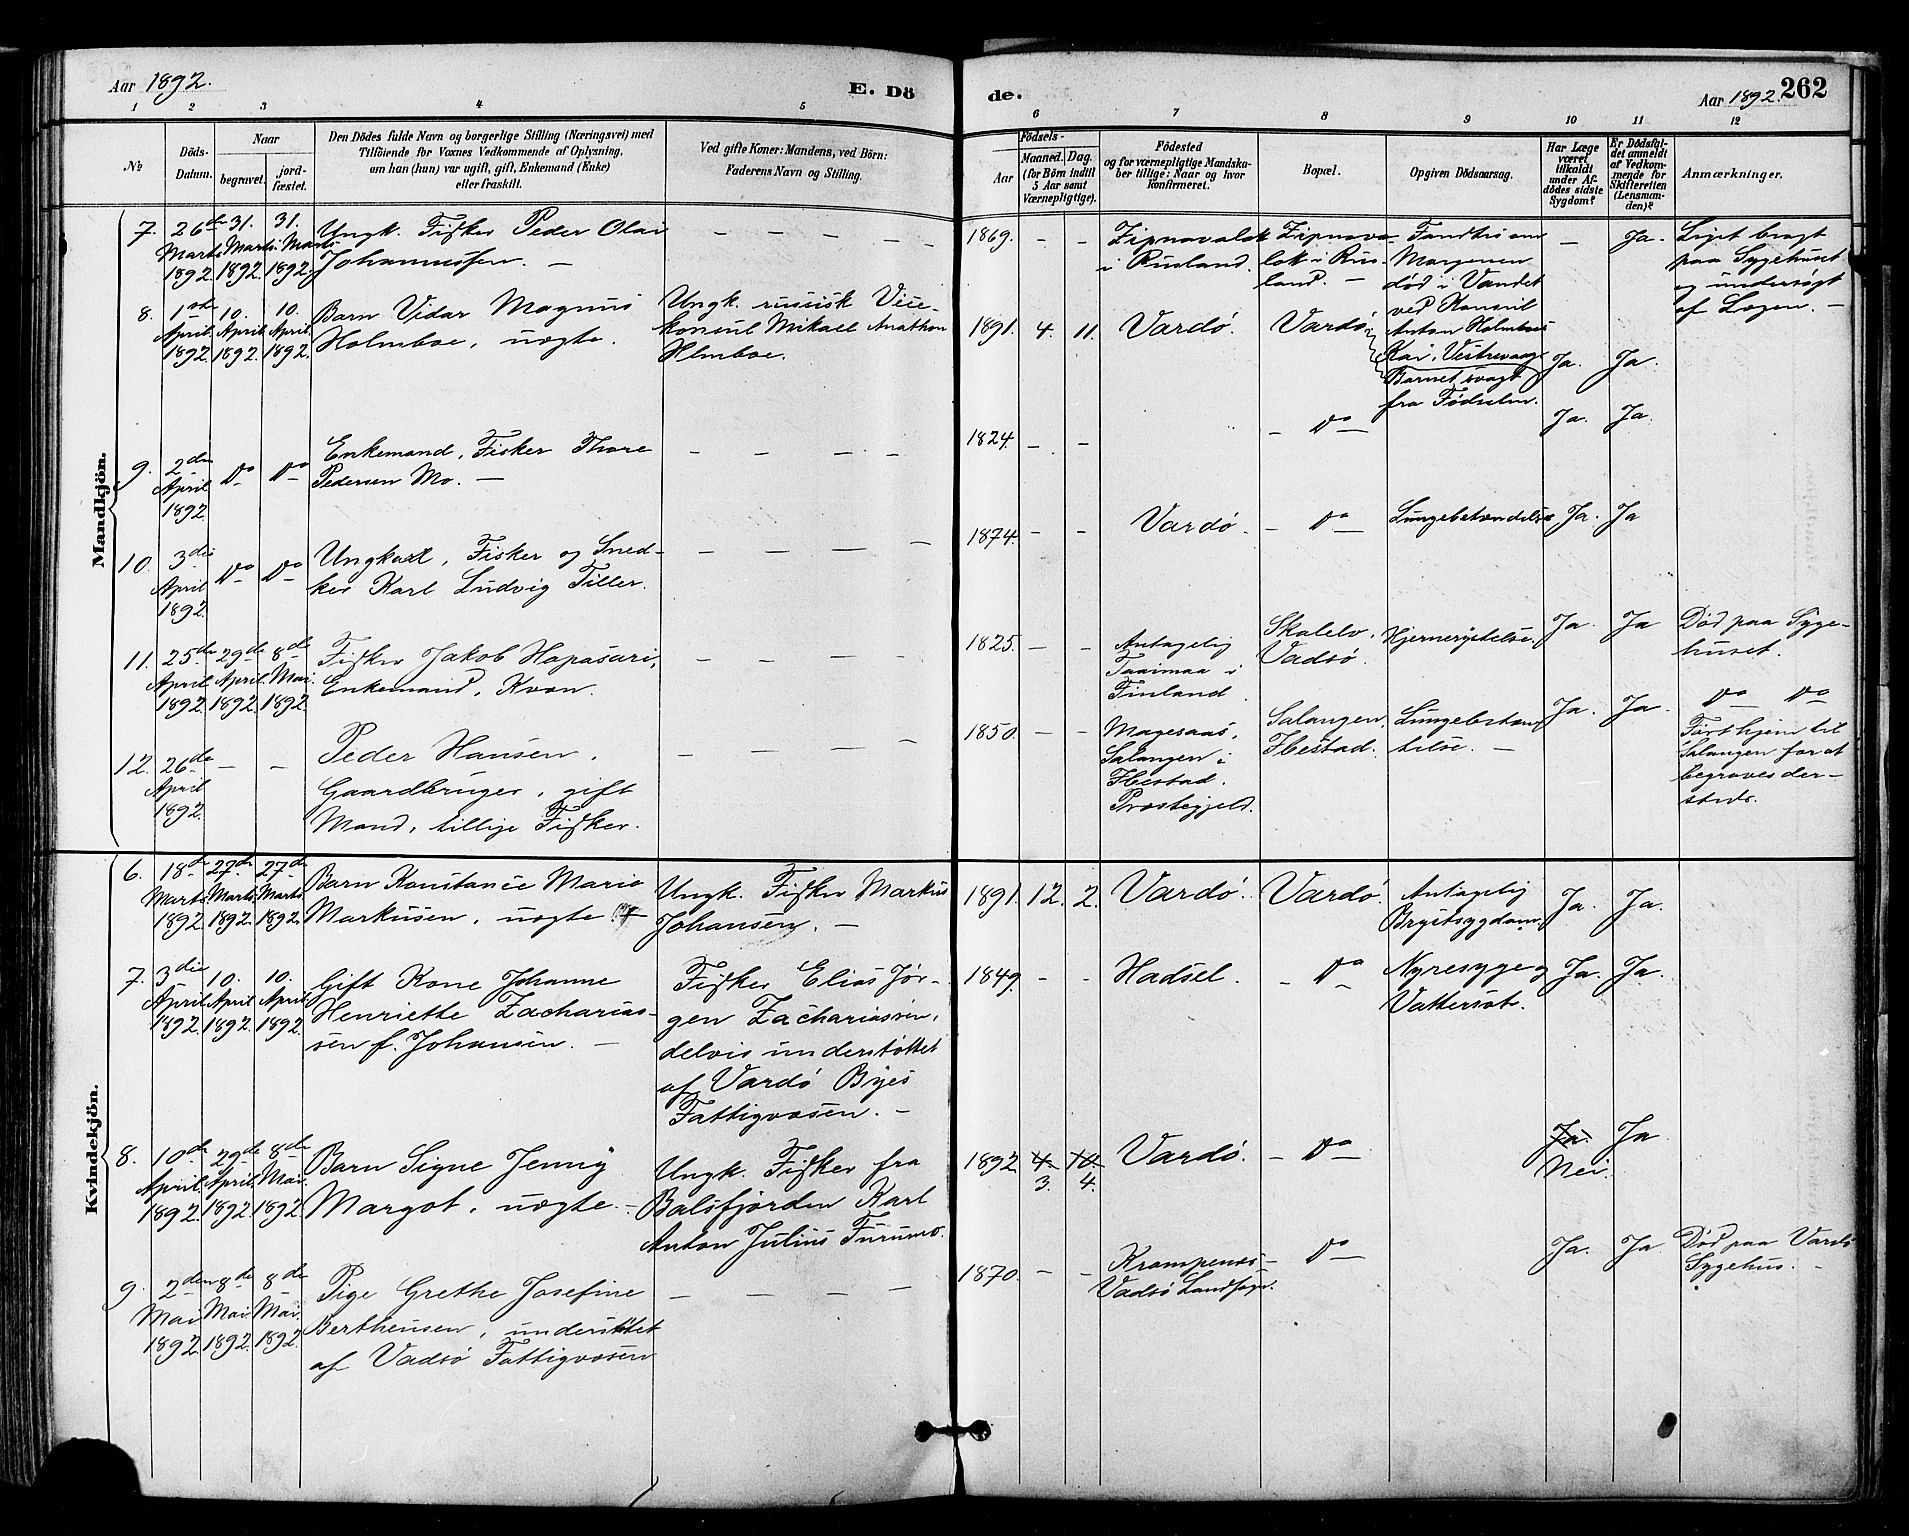 Aar 1892.
E. Dö
de.
Aar 1892. 262
1 2 3 4 5 6 7 8 9 10 11 12
№
Döds-
Datum.
Naar
begravet.
jord-
fæstet.
Den Dödes fulde Navn og borgerlige Stilling (Næringsvei) med
Tilföiende for Voxnes Vedkommende af Oplysning,
om han (hun) var ugift, gift, Enkemand (Enke)
eller fraskilt.
Ved gifte Koner: Mandens, ved Börn:
Faderens Navn og Stilling.
Födsels-
Aar
Maaned. Dag.
(for Börn indtil
5 Aar samt
Værnepligtige).
Födested
og for værnepligtige Mandska-
ber tillige: Naar og hvor
konfirmeret.
Bopæl.
Opgiven Dödsaarsag.
Har Læge
været
tilkaldt
under Af-
dödes sidste
Sygdom?
Er Dödsfal-
det anmeldt
af Vedkom-
mende for
Skifteretten
(Lensman-
den)?
Anmærkninger.
Mandkjön.
7. 26de Marts 1892 31. Marts 1892. 31. Marts 1892.
Ungk. Fisker Peder Olai
Johannessen. —
1869. – –
Zipnavalok
i Rusland.
Zipnavo-
lok i Rus-
land. —
Fandtes om
Morgenen
død i Vandet
ved Konsul
Anton Holmboes
Kai, Vestrevaag
– Ja.
Liget bragt
paa Sygehuset
og undersøgt
af Lægen. —
8. 1ste April 1892 10. April 1892. 10. April 1892.
Barn Vidar Magnus
Holmboe, uægte.
Ungk. russisk Vice-
konsul Mikael Anathon
Hlmboe.
1891. 4. 11. Vardø. Vardø.
Barnet svagt
fra Fødselen.
Ja. Ja.
9. 2den April 1892 Do Do
Enkemand, Fisker Thore
Pedersen Mo. —
1824. – – – Do – Ja. Ja.
10. 3die April 1892 Do Do
Ungkarl, Fisker og Sned-
ker Karl Ludvig Tiller.
1874. – – Vardø. – Do – Lungebetændelse Ja. Ja
11. 25de April 1892 29de April 1892. 8de Mai 1892
Fisker Jakob Hapasari,
Enkemand, Kvæn.
1825. – –
Antagelig
i
Finland.
Skalelv,
Vadsø.
Hjernerystelse. Ja. Ja
Død paa Syge-
huset.
12. 26de April 1892. – –
Peder Hansen,
Gaardbruger, gift
Mand, tillige Fisker.
1850. – –
Salangen i
Ibestad
Præstegjeld.
Salangen
Ibestad.
Lungebetæn-
telse. —
Ja. Ja.
Do Do
Ført hjem til
Salangen for at
begraves der-
steds.
Kvindekjön.
6. 18de Marts 1892 27de Marts 1892 27de Marts 1892
Barn Konstance Marie
Markusen, uægte
Ungk. Fisker Markus
Johansen. —
1891. 12. 2. Vardø. Vardø.
Antagelig
Brystsygdom.
Ja. Ja.
7. 3die April 1892 10. April 1892. 10. April 1892.
Gift Kone Johanne
Henriette Zacharias-
sen f. Johansen. —
Fisker Elias Jør-
gen Zachariassen,
delvis understøttet
af Vardø Byes
Fattigvæsen. —
1849. – – Hadsel. – Do –
Nyresyge og
Vattersot.
Ja. Ja.
8. 10de April 1892. 29de April 1892. 8de Mai 1892.
Barn Signe Jenny
Margot, uægte. –
Ungk. Fisker fra
Balsfjorden Karl
Anton Julius Furumo.
1892 4. 10. Vardø. – Do – Ja. Ja
3. 4. Nei.
9. 2den Mai 1892 8de Mai 1892. 8de Mai 1892.
Pige Grethe Josefine
Berthensen, understøttet
af Vadsø Fattigvæsen
1870. – –
Krampenæs –
Vadsø Landsogn.
Do – Ja. Ja.
Død paa Vardø
Sygehus. –